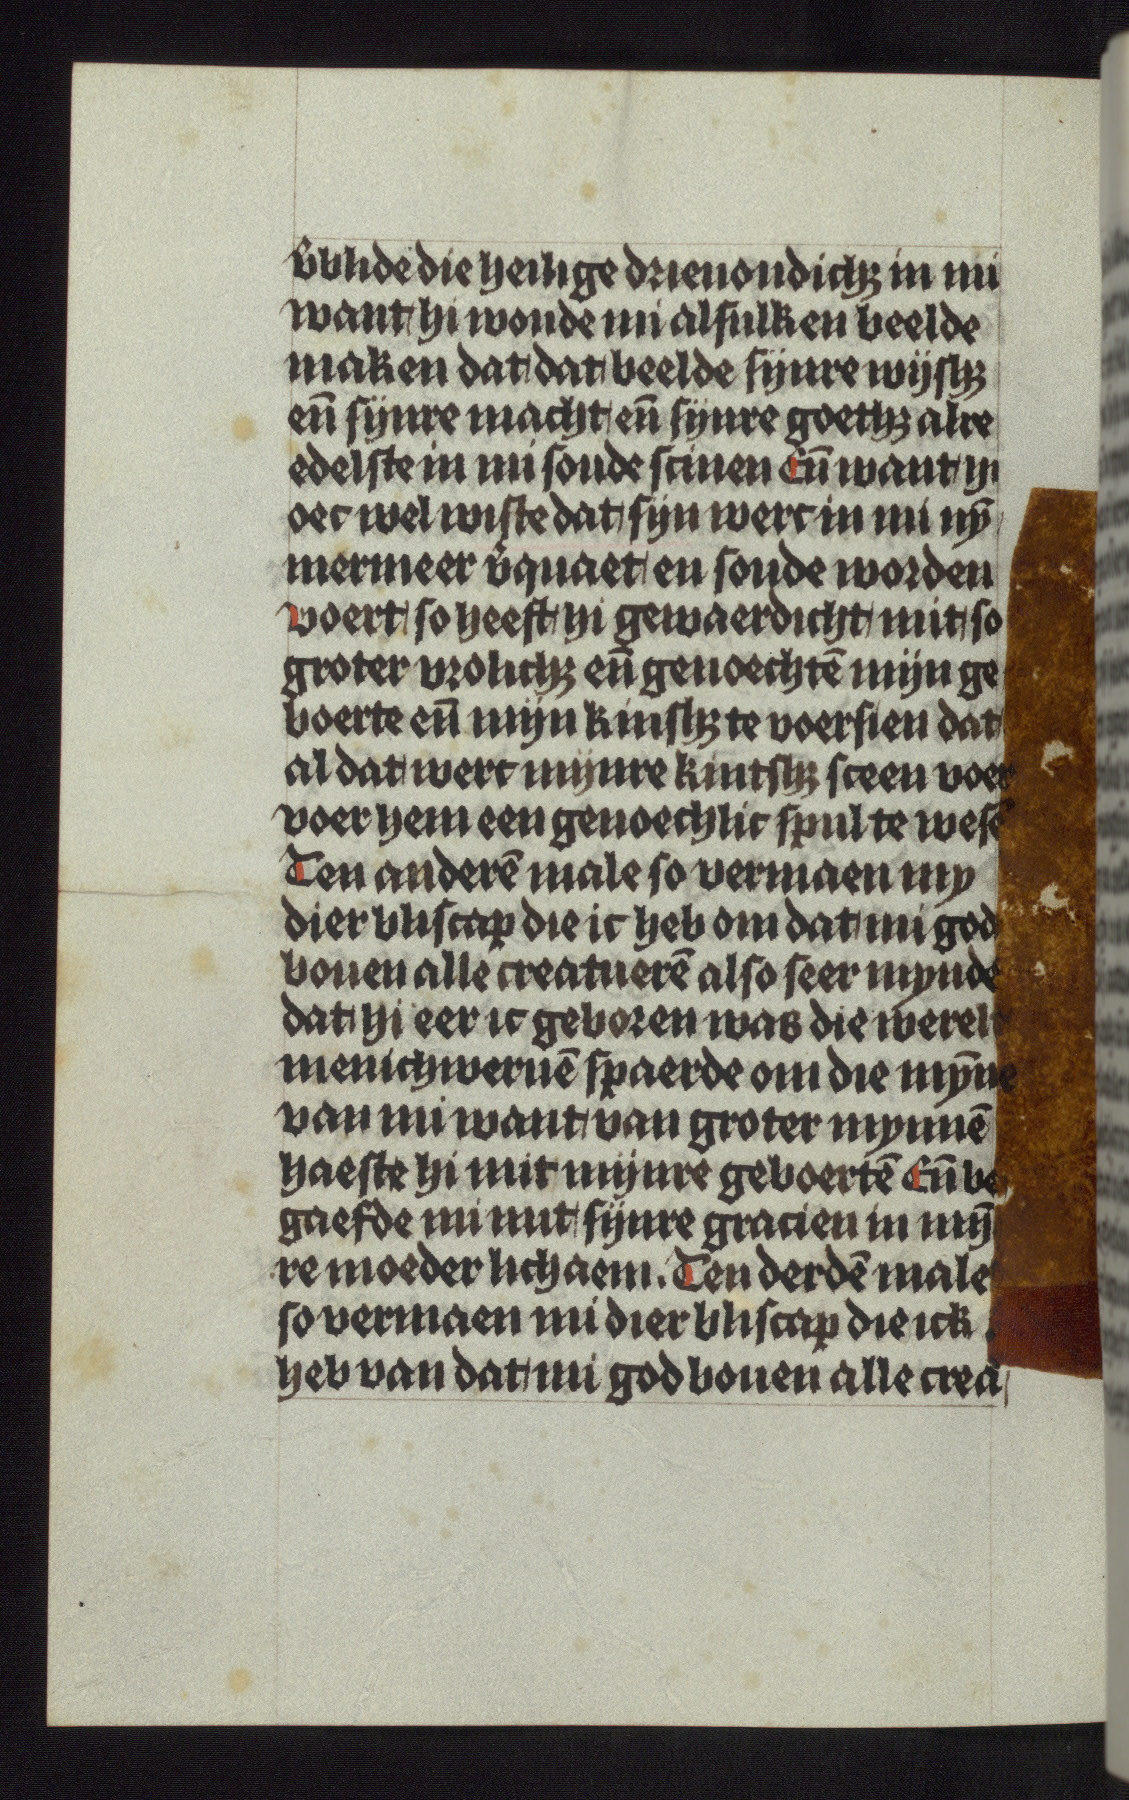 v̄blide die heilige drieuoudichꝫ in mi
want hi woude mi alsulken beelde
maken dat dat beelde sijnre wijshꝫ
eñ sijnre macht eñ sijnre goethꝫ alre
edelste in mi soude scinen Eñ want hi
oec wel wiste dat sijn werc in mi nȳ
mermeer v̄quaet en soude worden
voert so heeft hi gewaerdicht mit so
groter vrolichꝫ eñ genoechtē mijn ge
boerte eñ mijn kinshꝫ te voersien dat
al dat werc mijnre kintshꝫ sceen voer
voer hem een genoechlic spul te wesē
Ten anderē male so vermaen my
dier bliscap die ic heb om dat mi god
bouen alle creatuerē also seer mynde
dat hi eer ic geboren was die werelt
menichweruē spaerde om die mȳne
van mi want van groter mynnē
haeste hi mit mijnre geboertē Eñ be
gaefde mi mit sijnre gracien in mij̄
re moeder lichaem. Ten derdē male
so vermaen mi dier bliscap die ick
heb van dat mi god bouen alle crea